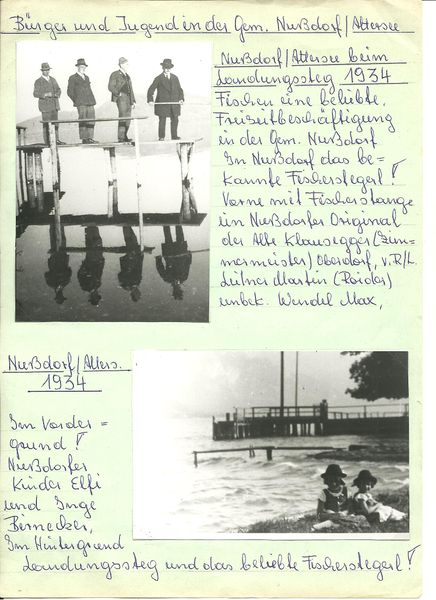 Bürger und Jugend in der Gem. Nußdorf/Attersee
Nußdorf/Attersee beim
Landungssteg 1934
Fischen eine beliebte,
Früseitbeschäftigung
in der Gem. Nußdorf
Im Nußdorf das be-
kannte Fischerstegerl!
Vorne mit Fischerstange
ein Nußdorfer Original
der Alte Klausegger (Zim-
mermeister) Oberdorf, v.R/L.
Martin
unbek. Wendel Max,
Nußdorf/Atters.
1934
Im Vorder=
grund!
Nußdorfer
Kinder Elfi
und Inge
Birnecker,
Im Hintergrund
Landungssteg und das beliebte Fischerstegerl!